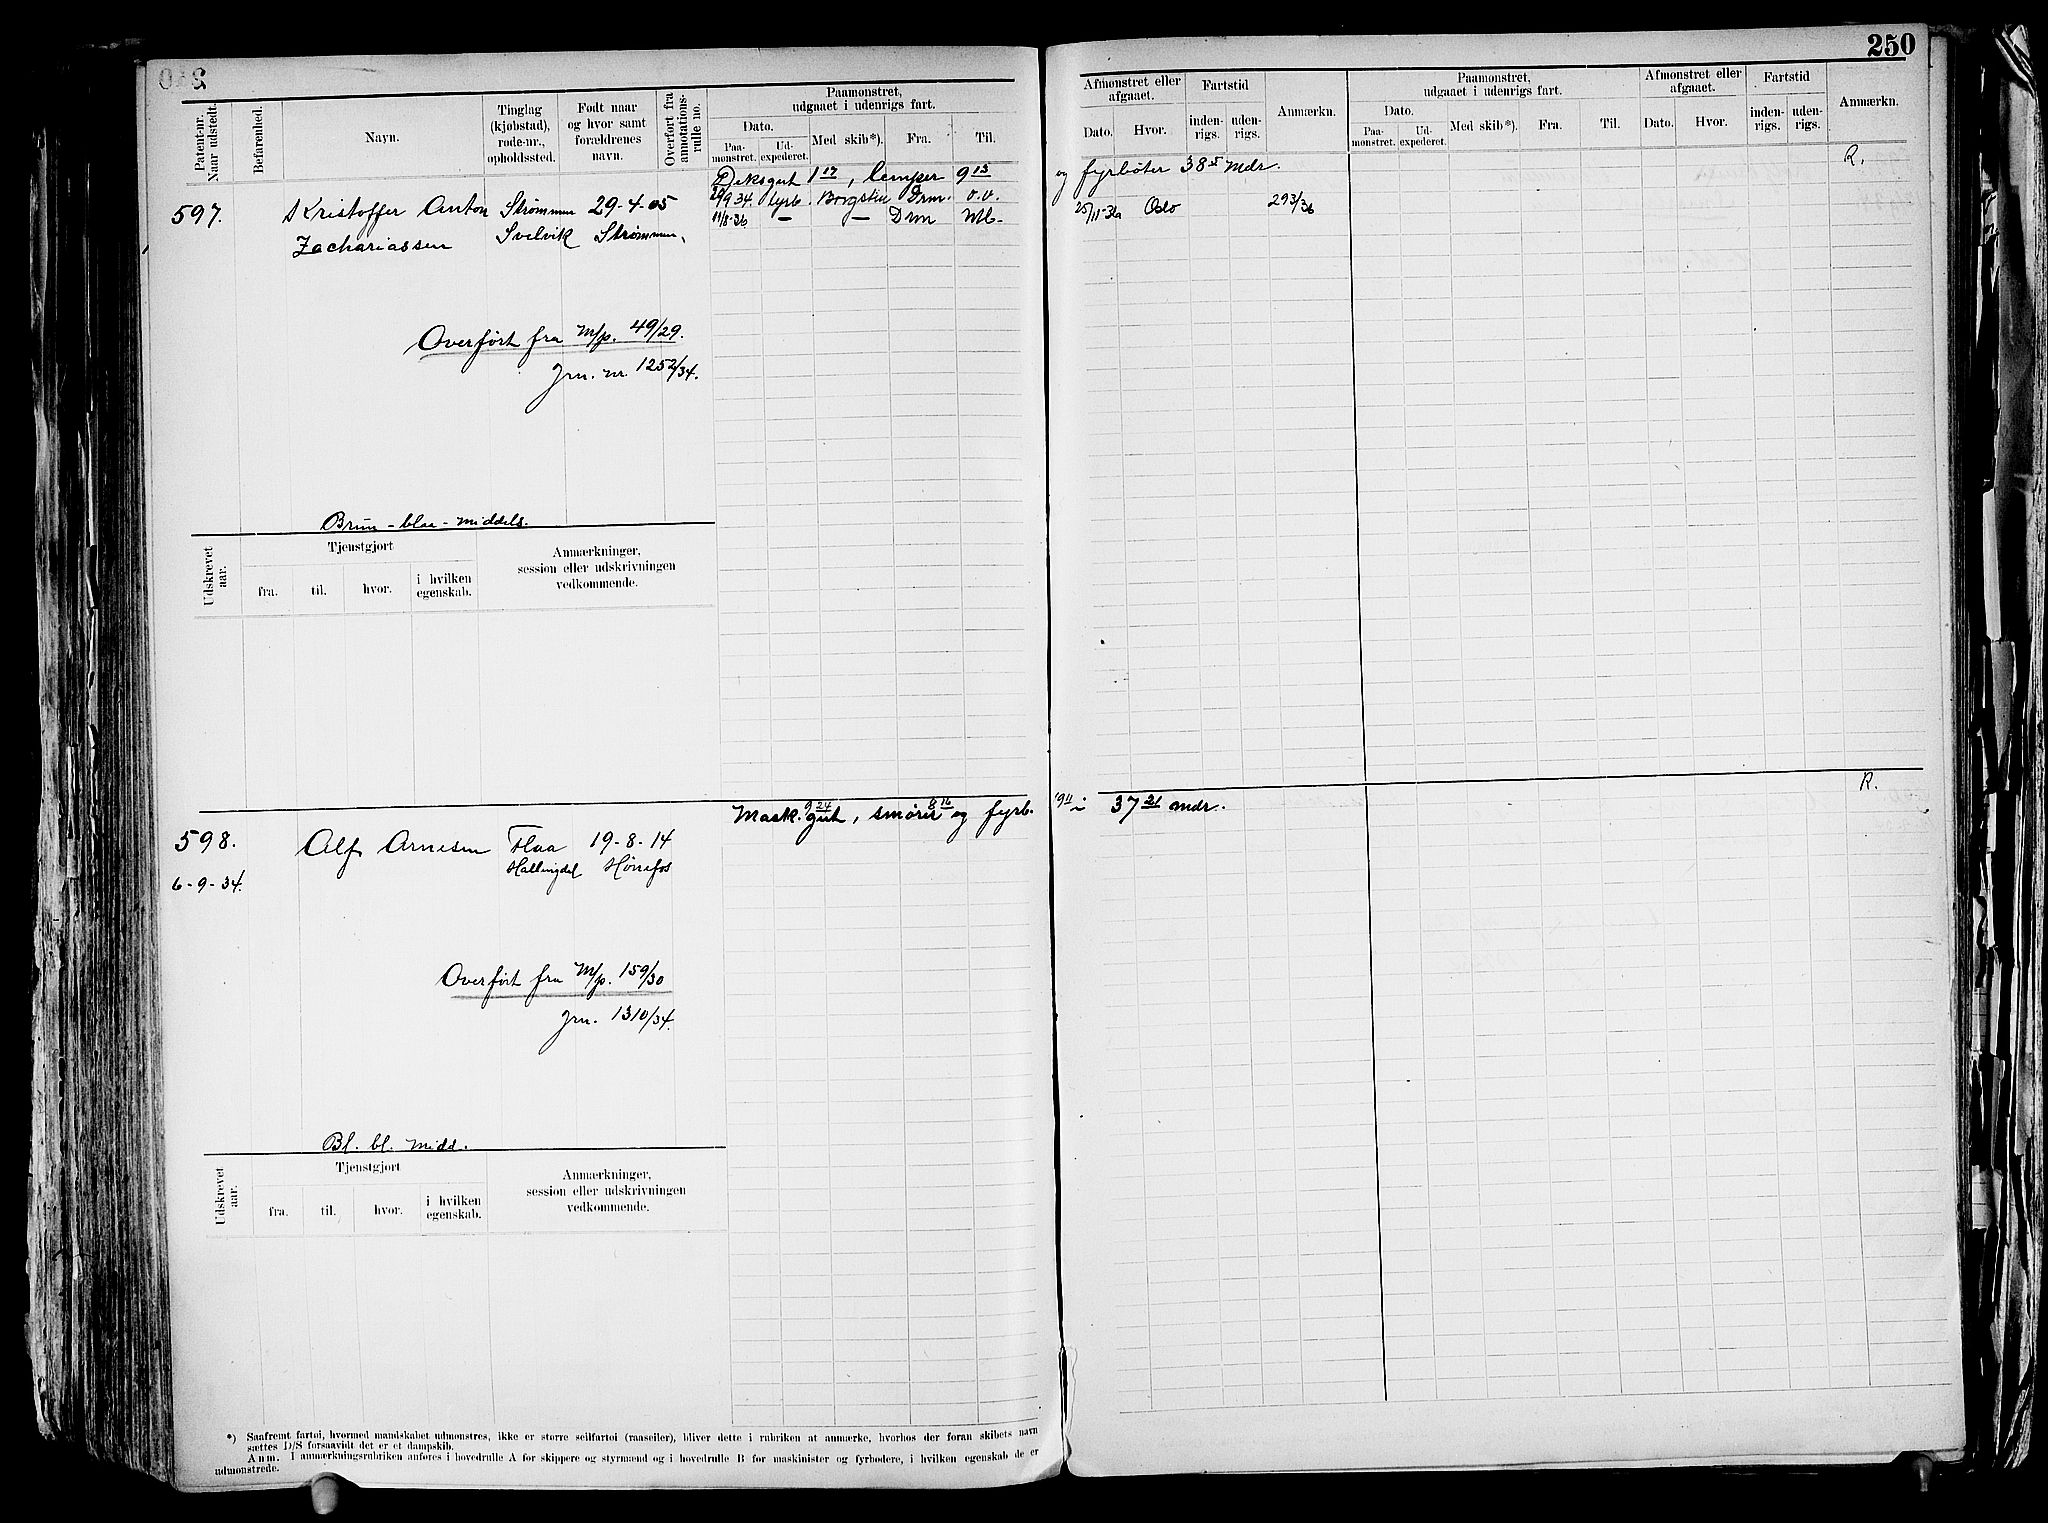 250
Patent-nr. Naar udstedt.
Befarenhed.
Navn.
Tinglag (kjøbstad), rode-nr., opholdssted.
Født naar og hvor samt forældrenes navn.
Overført fra annotations-rulle no.
Paamonstret, udgaaet i udenrigs fart.
Dato.
Paa-monstret.
Ud-expederet.
Med skib*).
Fra.
Til.
Afmonstret eller afgaaet.
Dato.
Hvor.
Fartstid
inden-rigs.
uden-rigs.
Anmærkn.
Paamonstret, udgaaet i udenrigs fart.
Dato.
Paa-monstret.
Ud-expederet.
Med skib*).
Fra.
Til.
Afmonstret eller afgaaet.
Dato.
Hvor.
Fartstid
inden-rigs.
uden-rigs.
Anmærkn.
Deksgut 1 17, lemper 9 13 og fyrbøter 38 5 mdr. R.
597. Kristoffer Anton Strømmen 29-4-05 /9 34 fyrb. Borgstein Drm. v.v. 25/11-36 Oslo 293/36
Zachariassen Svelvik Strømmen, 11/8-36 — — Drm
Overført fra M/p. 49/29.
Jrn. nr. 1252/34.
Brun - blaa - middels.
Udskrevet aar.
Tjenstgjort
fra.
til.
hvor.
i hvilken egenskab.
Anmærkninger, session eller udskrivningen vedkommende.
Mask. gut 9 24, smører 8 16 og fyrb. 19 11 i 37 21 mdr. R.
598. Alf Arnesen Flaa 19-8-14
6-9-34. Hallingdal Hønefos
Overført fra M/p. 159/30
Jrn. 1310/34.
Bl. bl. midd.
Udskrevet aar.
Tjenstgjort
fra.
til.
hvor.
i hvilken egenskab.
Anmærkninger, session eller udskrivningen vedkommende.
*) Saafremt fartøi, hvormed mandskabet udmonstres, ikke er større seilfartøi (raaseiler), bliver dette i rubriken at anmærke, hvorhos der foran skibets navn
sættes D/S forsaavidt det er et dampskib.
Anm. I anmærkningsrubriken anføres i hovedrulle A for skippere og styrmænd og i hovedrulle B for maskinister og fyrbødere, i hvilken egenskab de er
udmonstrede.